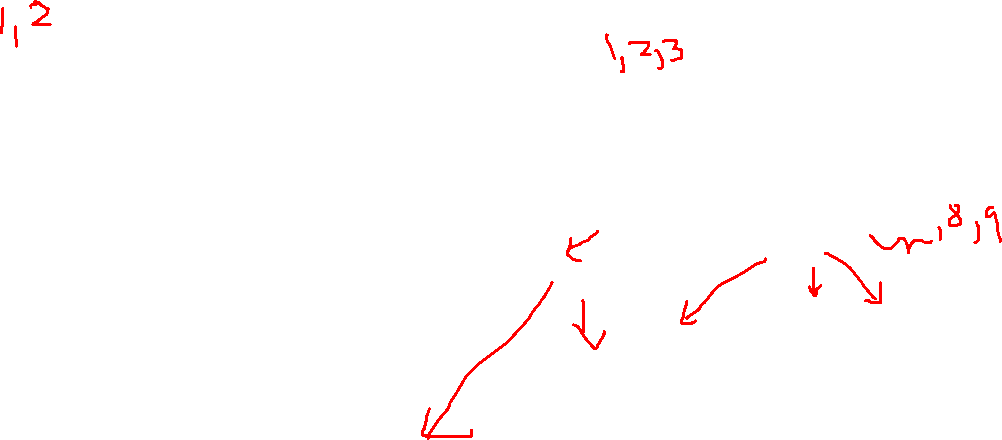 1,2
1,2,3
,8,9